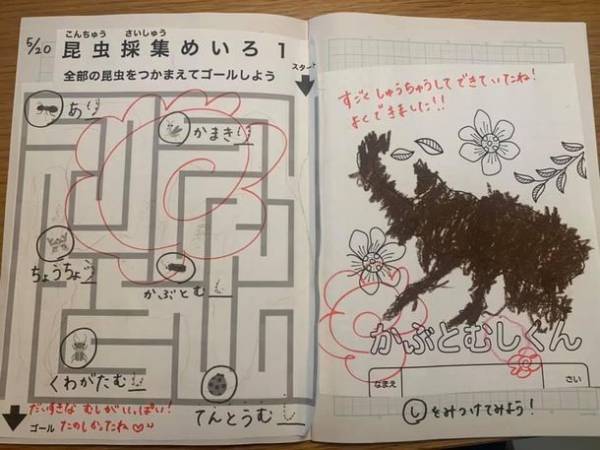 5/20
こんちゅう さいしゅう
昆虫採集めいろ1
全部の昆虫をつかまえてゴールしよう
スタート
あり
かまきり
ちょうちょ
かぶとむし
くわがたむし
てんとうむし
だいすきな むしがいっぱい!
ゴール たのしかったね♡
すごく しゅうちゅうして できていたね!
よくできました!!
かぶとむしくん
なまえ
さい
しをみつけてみよう!